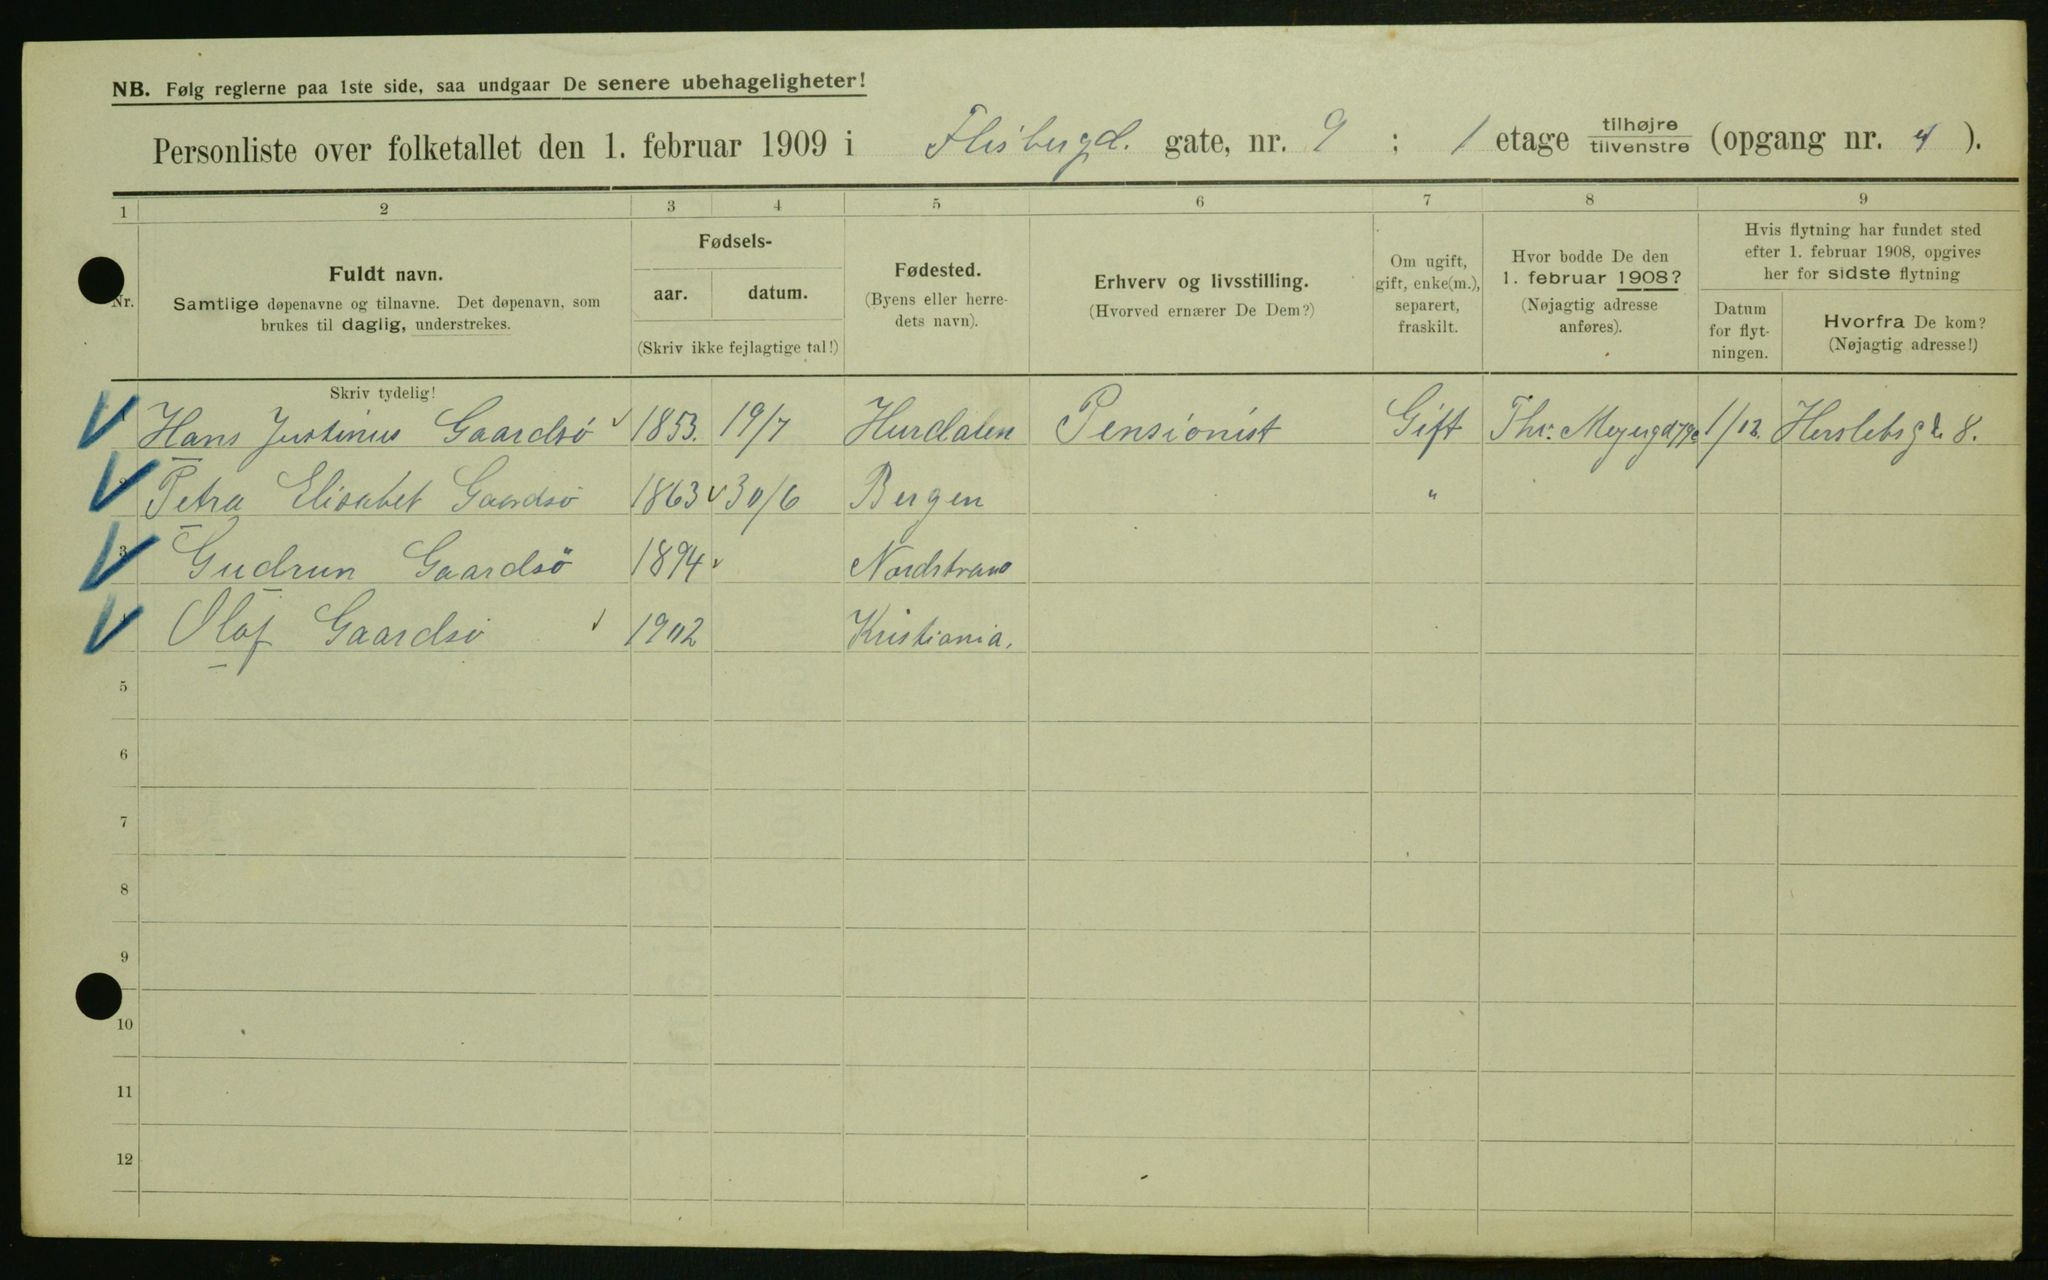 NB. Følg reglerne paa 1ste side, saa undgaar De senere ubehageligheter!
Personliste over folketallet den 1. februar 1909 i Flisbergd. gate, nr. 9 ; 1 etage tilhøjre/tilvenstre (opgang nr. 4 ).
1 2 3 4 5 6 7 8 9
Nr.
Fuldt navn.
Samtlige døpenavne og tilnavne. Det døpenavn, som
brukes til daglig, understrekes.
Fødsels-
aar. datum.
(Skriv ikke fejlagtige tal!)
Fødested.
(Byens eller herre-
dets navn).
Erhverv og livsstilling.
(Hvorved ernærer De Dem?)
Om ugift,
gift, enke(m.),
separert,
fraskilt.
Hvor bodde De den
1. februar 1908?
(Nøjagtig adresse
anføres).
Hvis flytning har fundet sted
efter 1. februar 1908, opgives
her for sidste flytning
Datum
for flyt-
ningen.
Hvorfra De kom?
(Nøjagtig adresse!)
Skriv tydelig!
Hans Justinus Gaardsø 1853. 19/7 Hurdalen Pensionist Gift Thv. Meyergd 1/12. Herslebsgd. 8.
2 Petra Elisabet Gaardsø 1863 30/6 Bergen "
3 Gudrun Gaardsö 1894 Nordstrand
4 Olaf Gaardsø 1902 Kristiania.
5
6
7
8
9
10
11
12